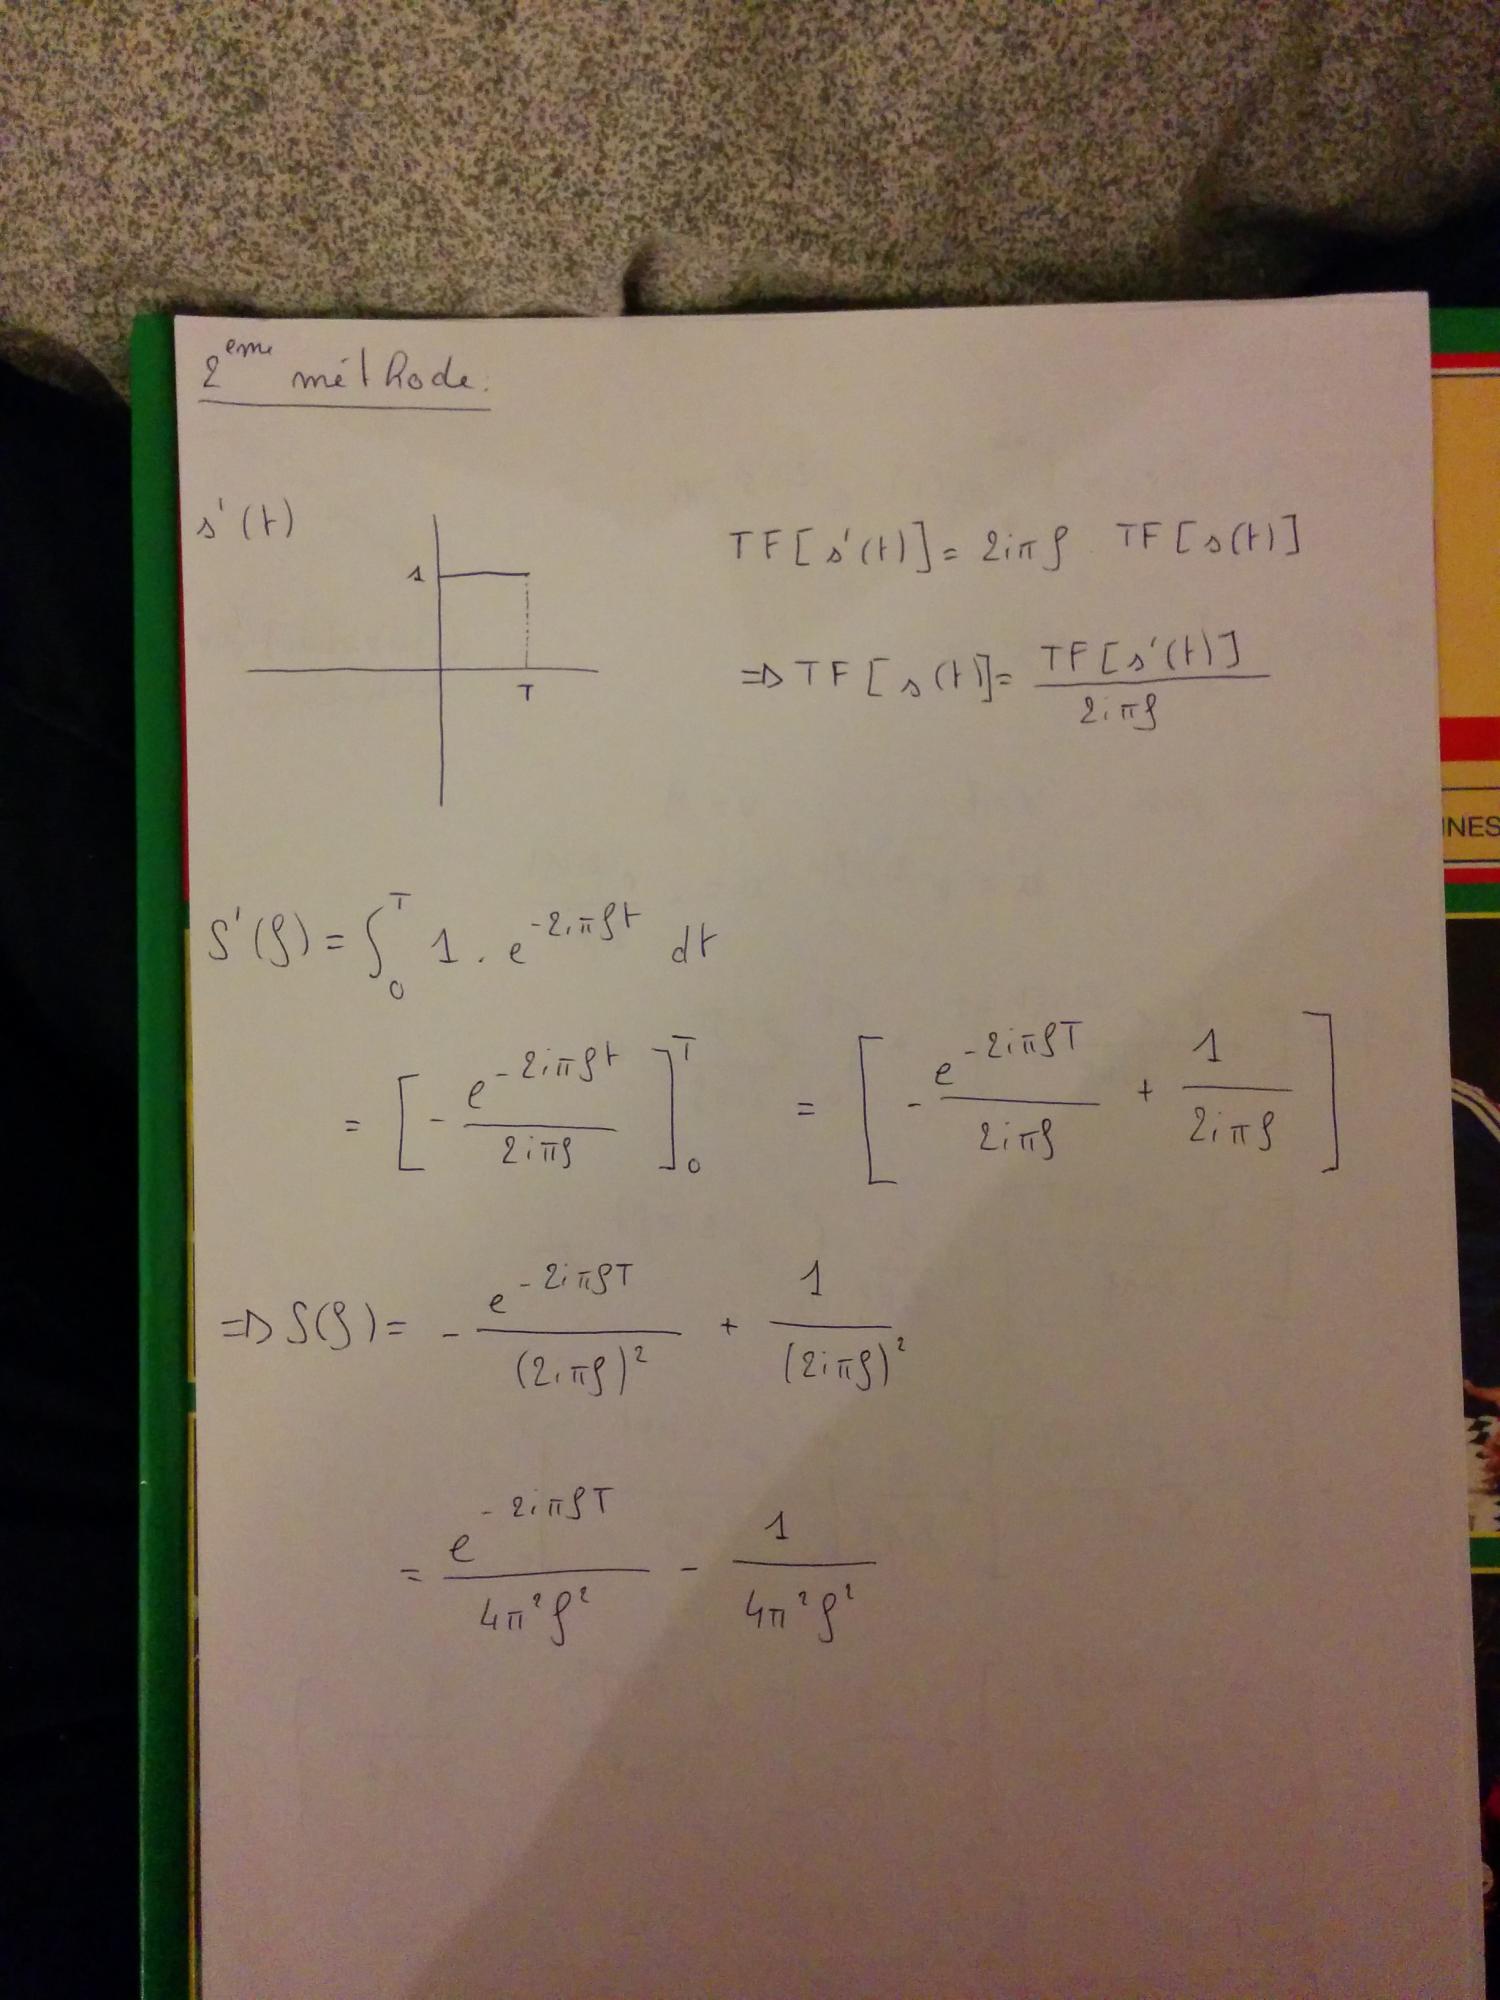 2eme méthode.
s'(t)
1
T
TF[s'(t)] = 2iπf TF[s(t)]
=> TF[s(t)] = TF[s'(t)] / 2iπf
S'(f) = ∫_0^T 1 . e^{-2iπft} dt
= [ - e^{-2iπft} / 2iπf ]_0^T = [ - e^{-2iπfT} / 2iπf + 1 / 2iπf ]
=> S(f) = - e^{-2iπfT} / (2iπf)² + 1 / (2iπf)²
= e^{-2iπfT} / 4π²f² - 1 / 4π²f²
INES